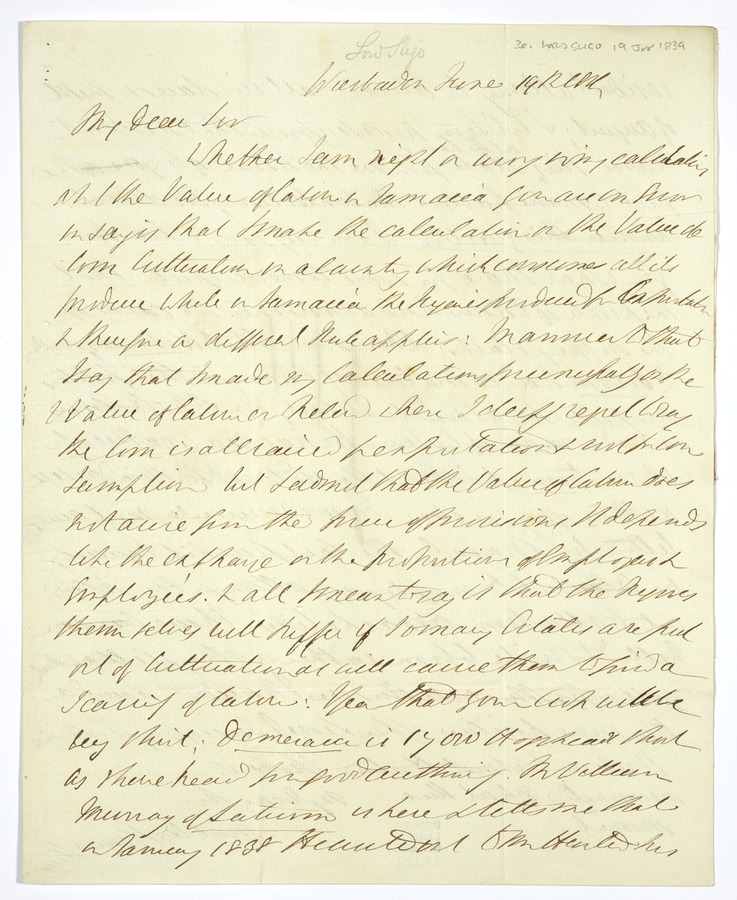 Lord Sligo
30. LORD SLIGO 19 Jun 1839
Wiesbaden June 19
My Dear Sir
Whether I am right or wrong in my calculating
the Value of labor in Jamaica you are in error
in saying that I make the calculation on the Value of
Corn Cultivation in a country which consumes all its
produce while in Jamaica the is produced for Exportation
& therefore a different Rule applies: In answer to that
I say that I made my Calculations on the
Value of labor in Ireland where I deeply regret to say
the Corn is all raised for exportation & not for Con
sumption but I admit that the Value of labor does
not arise from the price of provisions It depends
like the exchange on the proportion of Employers &
Employées. & all I mean to say is that the Negroes
themselves will suffer if so many Estates are put
out of Cultivation as will cause them to find a
scarcity of labor: I fear that your will be
very short; Demerara is 17,000 Hogsheads short
as I have heard from good authority. Mr William
Murray of is here & tells me that
in January 1838 he to his